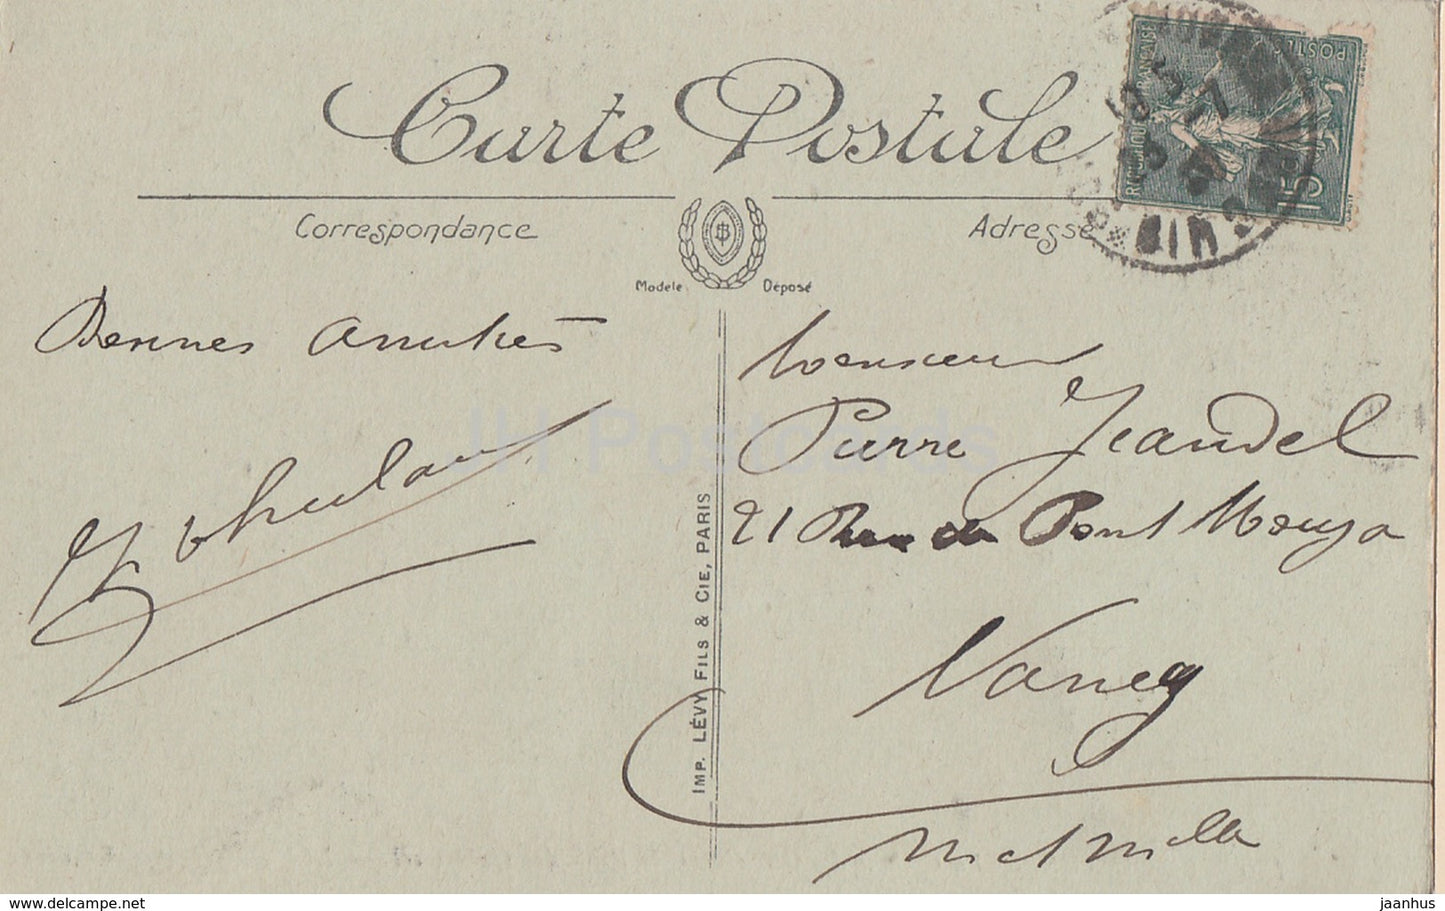 Carte Postale
Correspondance
Adresse
Modèle Déposé
Bonnes amitiés
Monsieur
Pierre Jeandel
21 Rue du Pont Mouja
Nancy
IMP. LÉVY FILS & CIE, PARIS
POSTES
FRANÇAISE
15
JH Postcards
www.delcampe.net
jaanhus